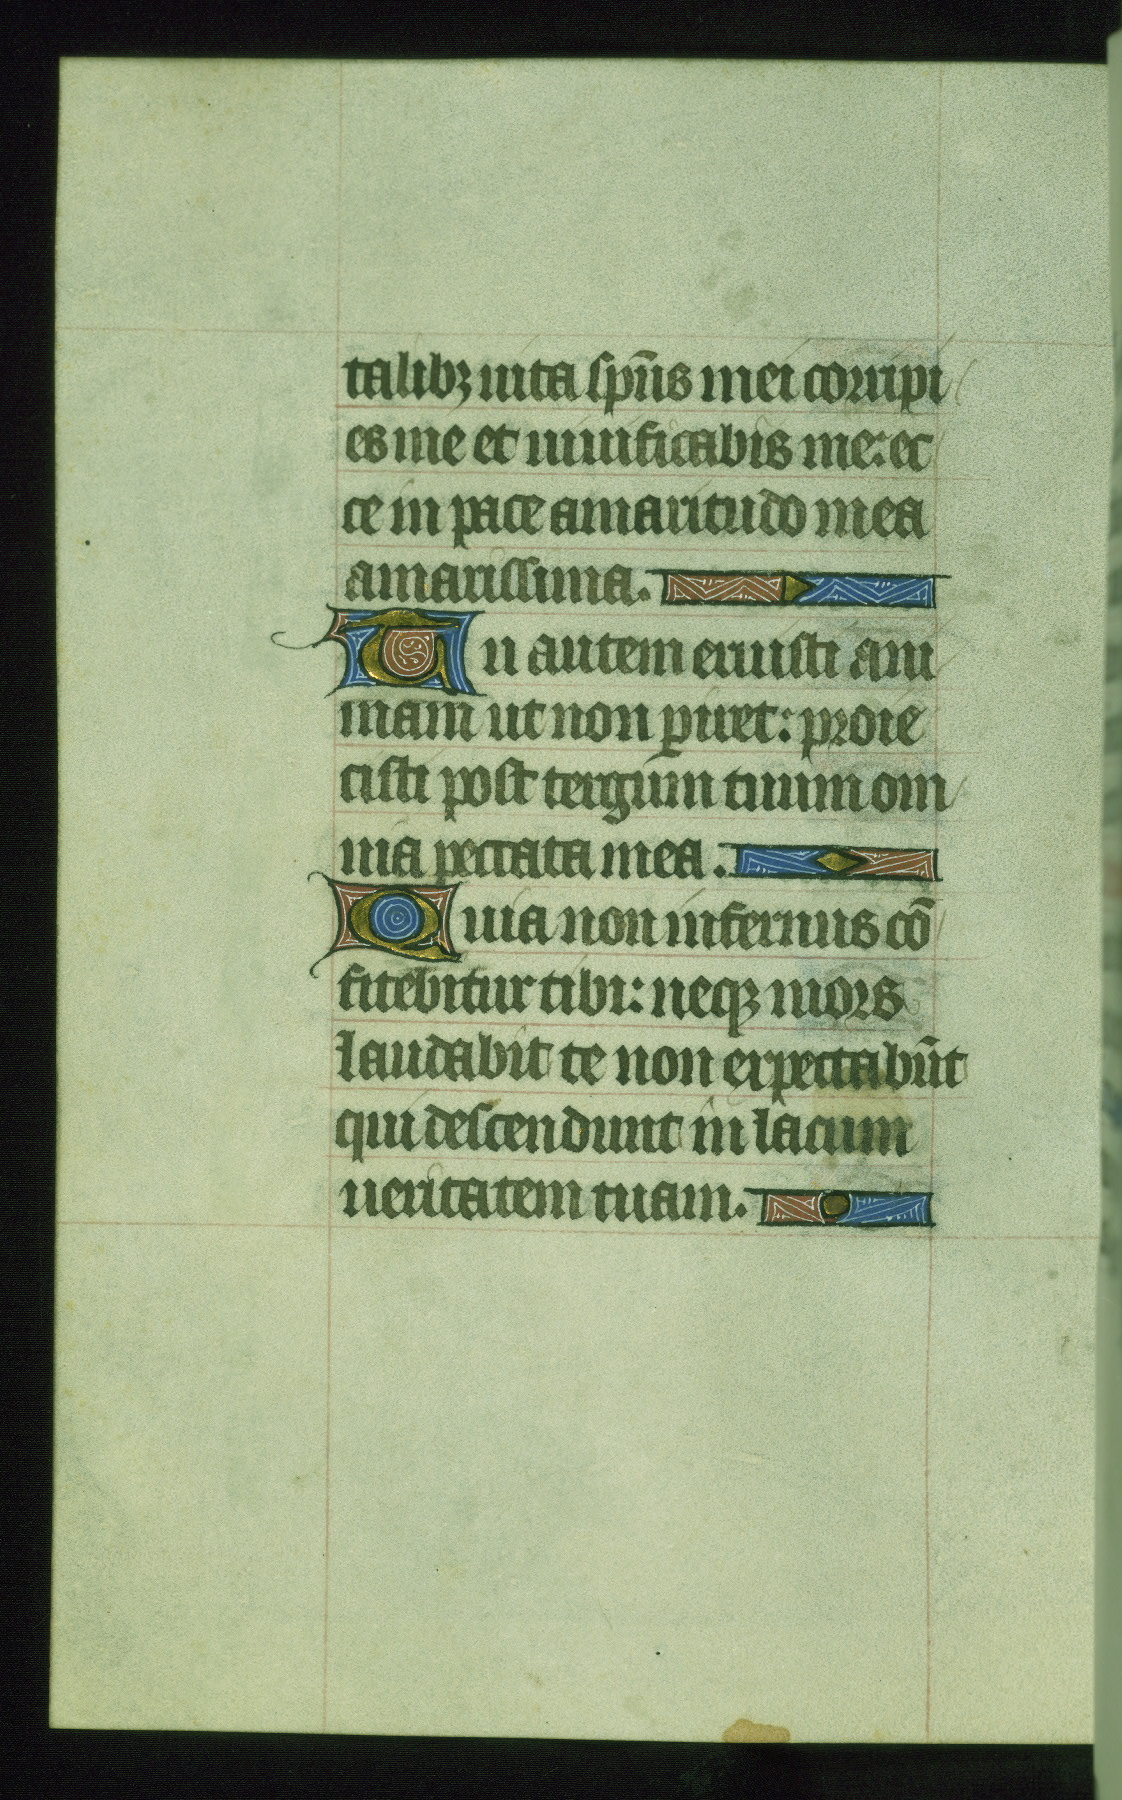 talibꝫ uita sp̄us mei corripi
es me et uiuificabis me: ec
ce in pace amaritudo mea
amarissima.
Tu autem eruisti ani
mam ut non ꝑiret: proie
cisti post tergum tuum om
nia peccata mea.
Quia non infernus cō
fitebitur tibi: neqꝫ mors
laudabit te non expectabūt
qui descendunt in lacum
ueritatem tuam.